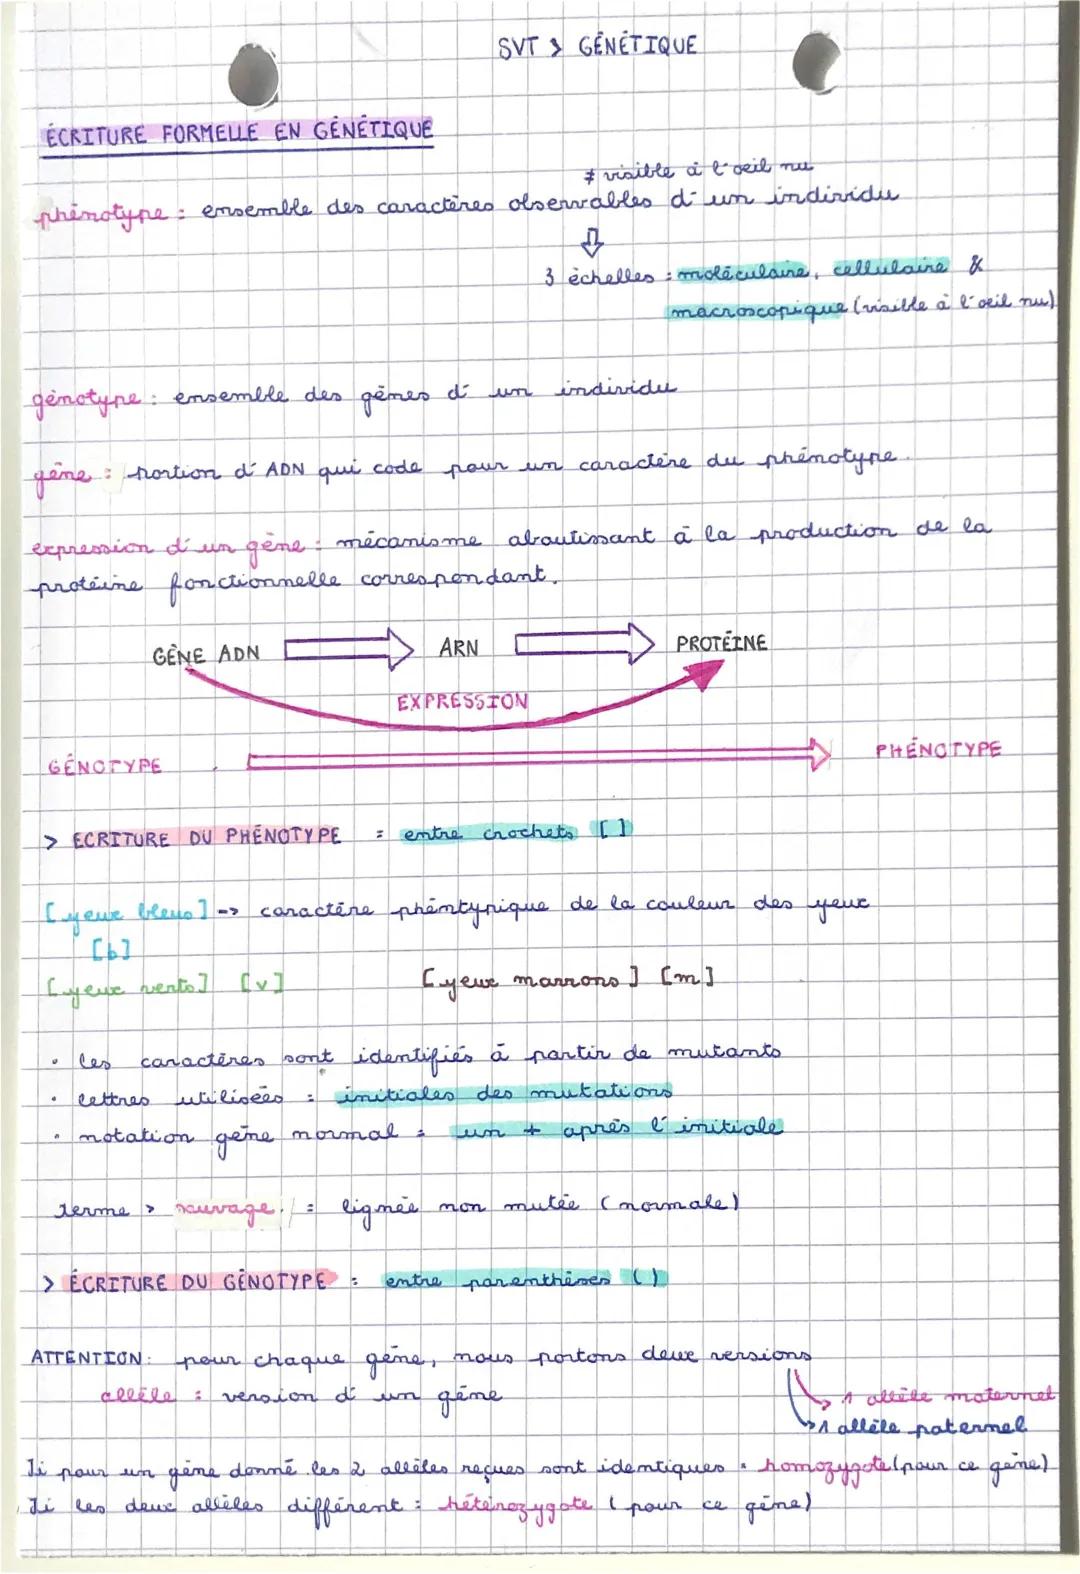 SVT > GÉNÉTIQUE
ÉCRITURE FORMELLE EN GÉNÉTIQUE
≠ visible à l'oeil nu
phénotype : ensemble des caractères observables d'un individu
⇩
3 échelles : moléculaire, cellulaire &
macroscopique (visible à l'oeil nu)
génotype : ensemble des gènes d'un individu
gène : portion d'ADN qui code pour un caractère du phénotype.
expression d'un gène : mécanisme aboutissant à la production de la
protéine fonctionnelle correspondant.
GÈNE ADN ⇨ ARN ⇨ PROTÉINE
EXPRESSION
GÉNOTYPE ⇨ PHÉNOTYPE
> ECRITURE DU PHÉNOTYPE : entre crochets []
[yeux bleus] -> caractère phéntypique de la couleur des yeux
[b]
[yeux verts] [v] [yeux marrons] [m]
• les caractères sont identifiés à partir de mutants
• lettres utilisées : initiales des mutations
• notation gène normal : un + après l'initiale
terme > sauvage : lignée non mutée (normale)
> ÉCRITURE DU GÉNOTYPE : entre parenthèses ()
ATTENTION: pour chaque gène, nous portons deux versions
allèle : version d'un gène
→ 1 allèle maternel
→ 1 allèle paternel
Si pour un gène donné les 2 allèles reçues sont identiques : homozygote (pour ce gène)
Si les deux allèles différent : hétérozygote (pour ce gène)